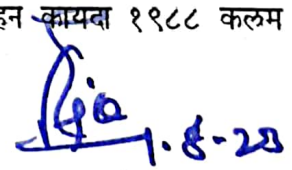 हन कायदा १९८८ कलम
1.8-23